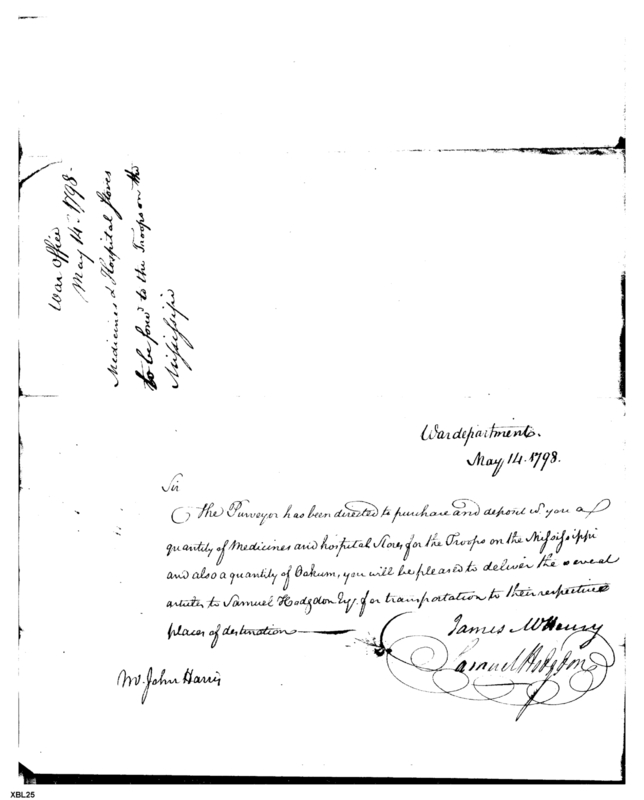 War Office
May 14. 1798.
Medicines & Hospital Stores
to be forw.d to the Troops on the
Mississippi
War department.
May 14. 1798.
Sir
The Purveyor has been directed to purchase and deposit w you a
quantity of Medicines and hospital Stores for the Troops on the Mississippi
and also a quantity of Oakum, you will be pleased to deliver the several
articles to Samuel Hodgdon Esq. for transportation to their respective
places of destination
James McHenry
Samuel Hodgdon
Mr. John Harris
XBL25